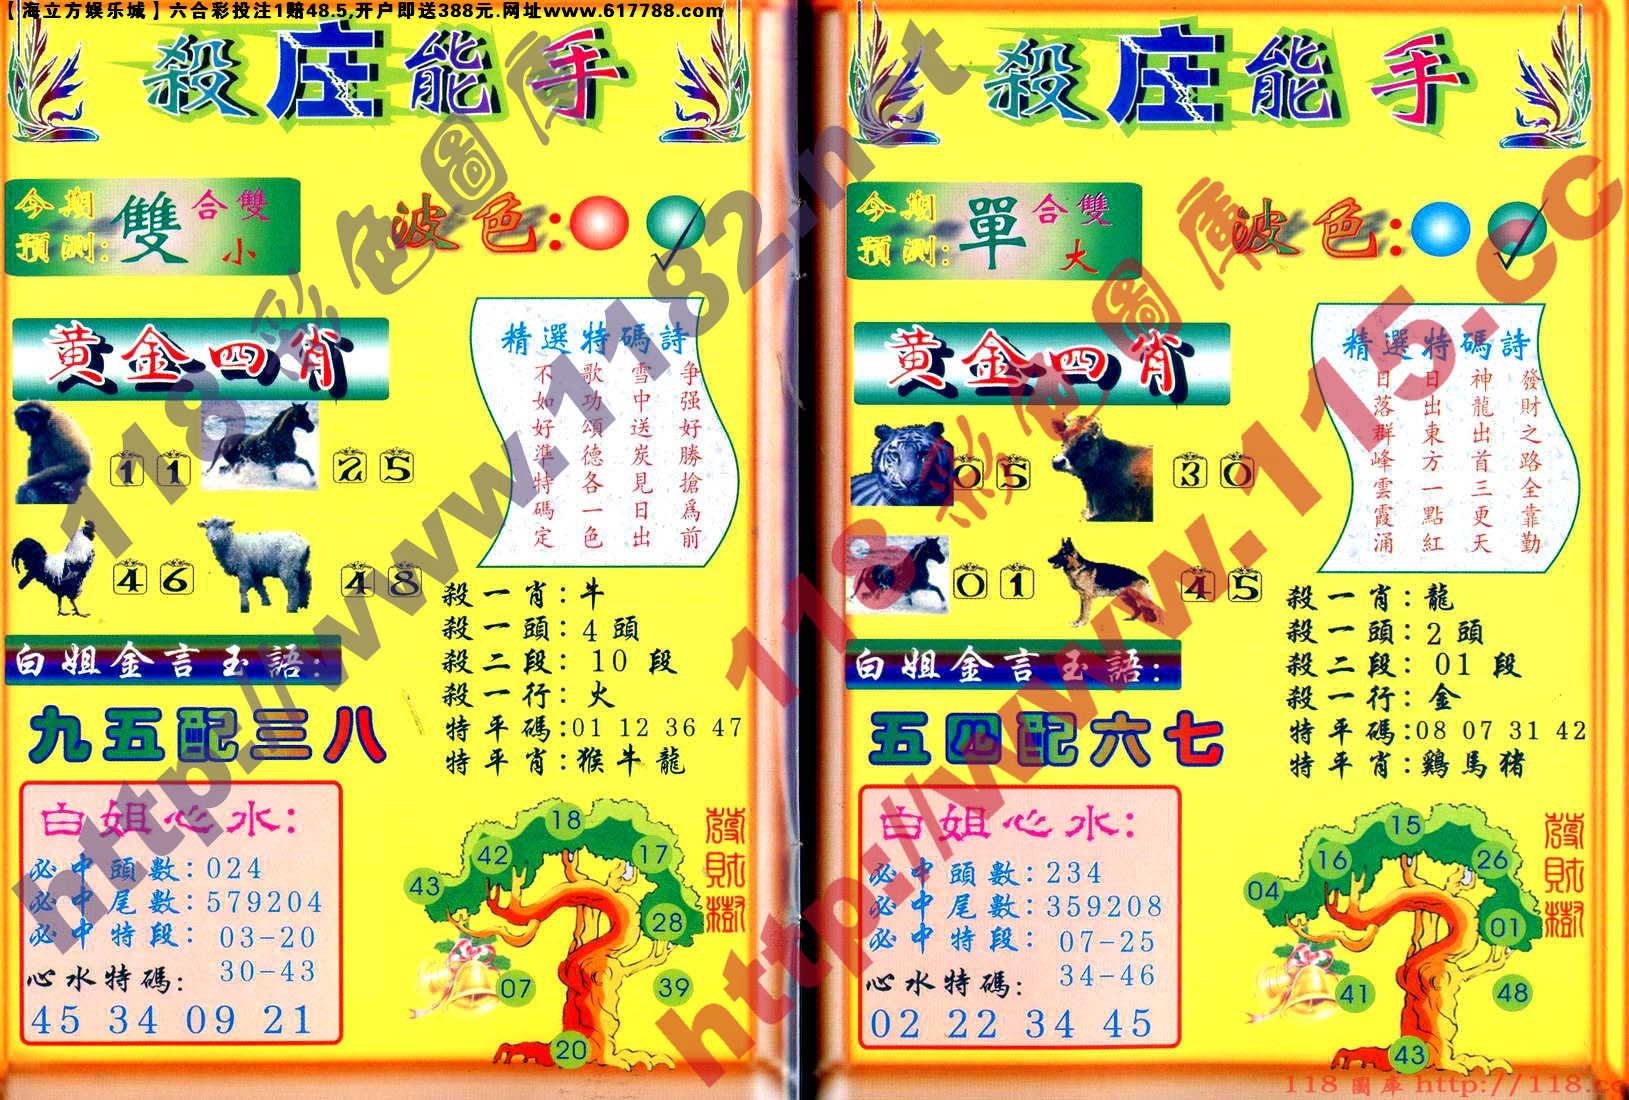 【海立方娱乐城】六合彩投注1赔48.5,开户即送388元.网址www.617788.com
殺庄能手
今期
預測:
雙
合雙
小
波色:
黄金四肖
11
25
46
48
精選特碼詩
争强好勝搶爲前
雪中送炭見日出
歌功頌德各一色
不如好準特碼定
殺一肖:牛
殺一頭:4頭
殺二段:10段
殺一行:火
特平碼:01 12 36 47
特平肖:猴牛龍
白姐金言玉語:
九五配三八
白姐心水:
必中頭數:024
必中尾數:579204
必中特段:03-20
30-43
心水特碼:
45 34 09 21
18
42
17
43
28
07
39
20
發財樹
殺庄能手
今期
預測:
單
合雙
大
波色:
黄金四肖
05
30
01
45
精選特碼詩
發財之路全靠勤
神龍出首三更天
日出東方一點紅
日落群峰雲霞涌
殺一肖:龍
殺一頭:2頭
殺二段:01段
殺一行:金
特平碼:08 07 31 42
特平肖:鷄馬猪
白姐金言玉語:
五四配六七
白姐心水:
必中頭數:234
必中尾數:359208
必中特段:07-25
34-46
心水特碼:
02 22 34 45
15
16
26
04
01
41
48
43
發財樹
118彩色圖庫
http://www.1182.net
118彩色圖庫
http://www.115.cc
118圖庫 http://118.cc